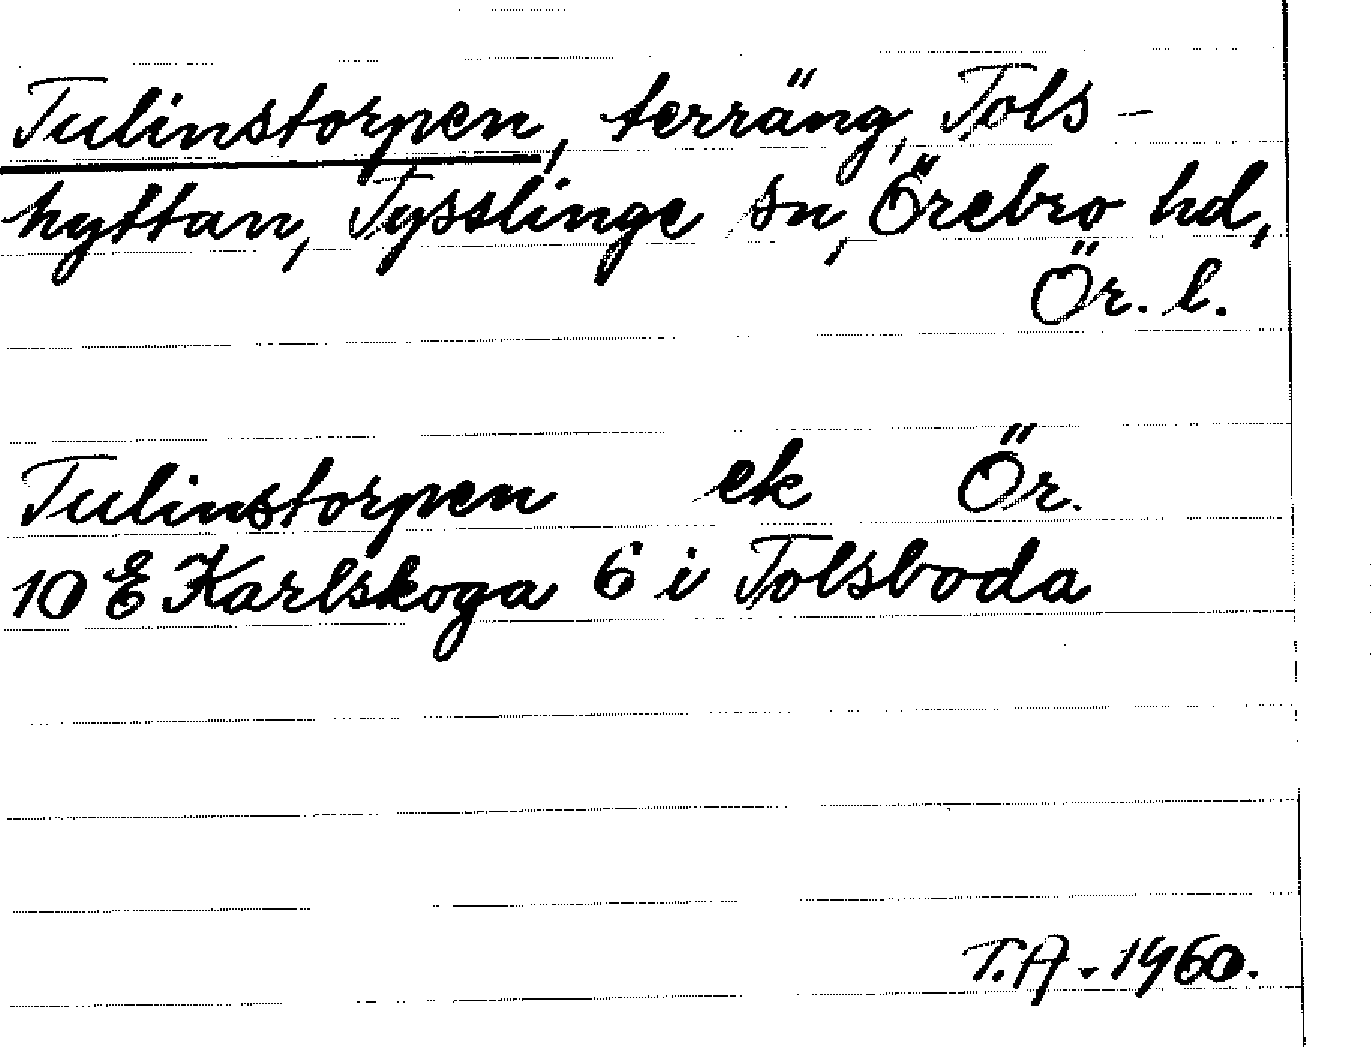 Tulinstorpen, terräng, Tols-
hyttan, Tysslinge sn, Örebro hd,
Ör. l.
Tulinstorpen ek Ör.
10 E Karlskoga 6 i Tolsboda
T.A. 1960.